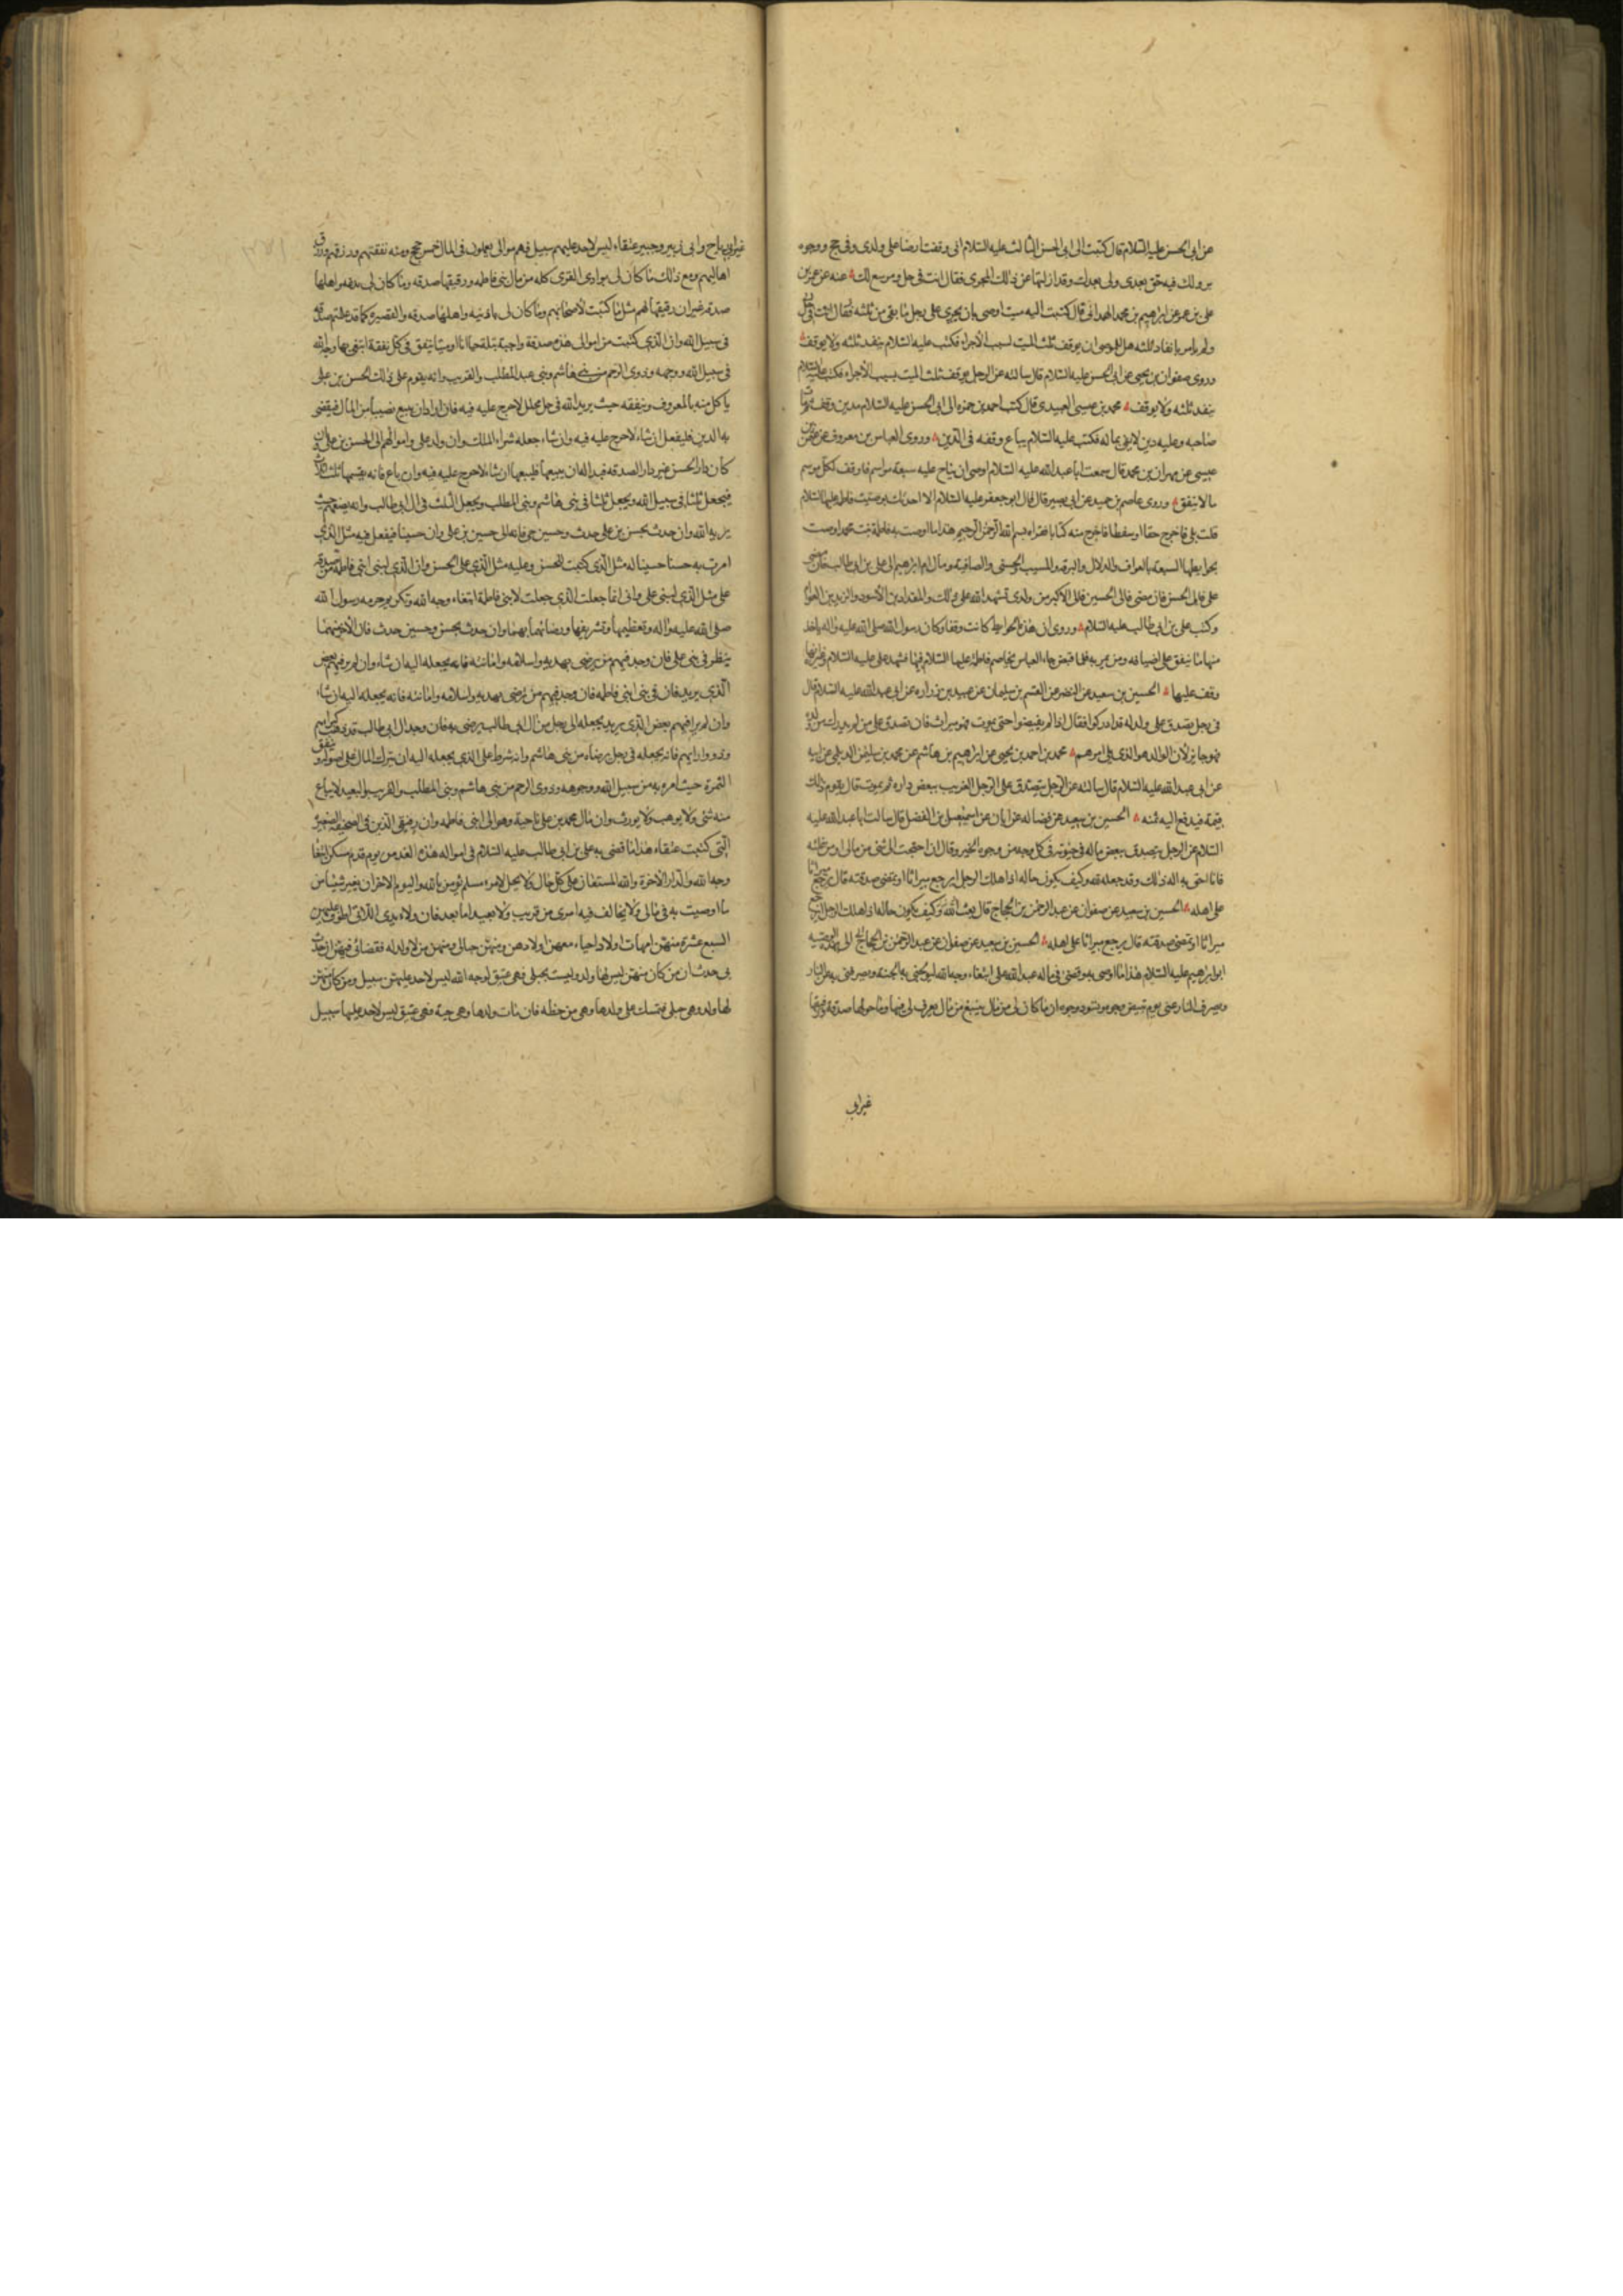 عن ابى الحسن عليه السلام قال كتبت الى ابى الحسن الثالث عليه السلام انى وقفت ارضا على ولدى وفى حج ووجوه
بر ولك فيه حق بعدى ولى بعدك وقد ازلتها عن ذلك المجرى فقال انت فى حل وموسع لك عنه عن عمر بن
على بن عمر عن ابراهيم بن محمد الهمدانى قال كتبت اليه ميت اوصى بان يجرى على رجل ما بقى من ثلثه
ولم يامر بانفاد ثلثه هل للوصى ان يوقف ثلث الميت لسبب الأجراء فكتب عليه السلام ينفد ثلثه ولا يوقف
وروى صفوان بن يحيى عن ابى الحسن عليه السلام قال سالته عن الرجل يوقف ثلث الميت بسبب الأجراء فكتب عليه السلام
ينفد ثلثه ولا يوقف محمد بن عيسى العبيدى قال كتب احمد بن حمزه الى ابى الحسن عليه السلام مدين وقف ثم مات
صاحبه وعليه دين لا يفى بماله فكتب عليه السلام يباع وقفه فى الدين وروى العباس بن معروف عن عثمن بن
عيسى عن مهران بن محمد قال سمعت ابا عبد الله عليه السلام اوصى ان يناح عليه سبعة مواسم فاوقف لكل موسم
مالا ينفق وروى عاصم بن حميد عن ابى بصير قال قال ابو جعفر عليه السلام الا احدثك بوصيت فاطمه عليها السلام
قلت بلى فاخرج حقا او سفطا فاخرج منه كتابا فقراه بسم الله الرحمن الرحيم هذا ما اوصت به فاطمة بنت محمد اوصت
بحوايطها السبعة بالعواف والدلال والبرقه والمسيب والحسنى والصافيه ومال ام ابراهيم الى على بن ابى طالب فان مضى
على فالى الحسن فان مضى فالى الحسين فالى الاكبر من ولدى تشهد الله على ذلك والمقداد بن الأسود والزبير بن العوام
وكتب على بن ابى طالب عليه السلام وروى ان هذه الحوايط كانت وقفا وكان رسول الله صلى الله عليه واله ياخذ
منها ما ينفق على اضيافه ومن يمر به فلما قبض جاء العباس يخاصم فاطمة عليها السلام فيها فشهد على عليه السلام وغيره انها
وقف عليها الحسين بن سعيد عن النضر عن القسم بن سليمان عن عبيد بن زراره عن ابى عبد الله عليه السلام قال
فى رجل تصدق على ولد له قد ادركوا فقال اذا لم يقبضوا حتى يموت فهو ميراث فان تصدق على من لم يدرك من ولده
فهو جايز لأن الوالد هو الذى يلى امرهم محمد بن احمد بن يحيى عن ابراهيم بن هاشم عن محمد بن سليمن الديلمى عن ابيه
عن ابى عبد الله عليه السلام قال سالته عن الرجل يتصدق على الرجل الغريب ببعض داره ثم يموت قال يقوم ذلك
قيمة فيدفع اليه ثمنه الحسين بن سعيد عن فضاله عن ابان عن اسمعيل بن الفضل قال سالت ابا عبد الله عليه
السلام عن الرجل يتصدق ببعض ماله فى حيوته فى كل وجه من وجوه الخير وقال ان احتجت الى شئ من مالى او من غلته
فانا احق به اله ذلك وقد جعله لله وكيف يكون حاله اذا هلك الرجل ايرجع ميراثا او يمضى صدقته قال يرجع ميراثا
على اهله الحسين بن سعيد عن صفوان عن عبد الرحمن بن الحجاج قال
ميراثا او تمضى صدقته قال يرجع ميراثا على اهله الحسين بن سعيد عن صفوان عن عبد الرحمن بن الحجاج
ابو ابراهيم عليه السلام هذا ما اوصى به وقضى فى ماله عبد الله على ابتغاء وجه الله ليولجنى به الجنة ويصرفنى به عن النار
ويصرف النار عنى يوم تبيض وجوه وتسود وجوه ان ما كان لى من مال بينبع من مال يعرف لى فيها وما حولها صدقة ورقيقها
غير ابى
غير ابى رباح وابى نيزر وجبير عتقاء ليس لاحد عليهم سبيل فهم موالى يعملون فى المال خمس حجج ومنه نفقتهم ورزقهم ورزق
اهاليهم ومع ذلك ما كان لى بوادى القرى كله من مال بنى فاطمه ورقيقها صدقه وما كان لى بديمه واهلها
صدقه غير ان رقيقها لهم مثل ما كتبت لأصحابهم وما كان لى باذينه واهلها صدقه والقصيره كما قد علمتم صدقة
فى سبيل الله وان الذى كتبت من اموالى هذه صدقة واجبة بتلة حيا انا او ميتا ينفق فى كل نفقة ابتغى بها وجه الله
فى سبيل الله ووجهه وذوى الرحم من بنى هاشم وبنى عبد المطلب والقريب وانه يقوم على ذلك الحسن بن على
ياكل منه بالمعروف وينفقه حيث يريد الله فى حل محلل لا حرج عليه فيه فان اراد ان يبيع نصيبا من المال فيقضى
به الدين فليفعل ان شاء لا حرج عليه فيه وان شاء جعله شراء الملك وان ولد على واموالهم الى الحسن بن على وان
كان دار الحسن غير دار الصدقه فبدا له ان يبيعها فليبعها ان شاء لا حرج عليه فيه وان باع فانه يقسمها ثلثة اثلاث
فيجعل ثلثا فى سبيل الله ويجعل ثلثا فى بنى هاشم وبنى المطلب ويجعل الثلث فى ال ابى طالب وانه يضعهم حيث
يريد الله وان حدث بحسن بن على حدث وحسين حى فانه الى حسين بن على وان حسينا فيفعل فيه مثل الذى
امرت به حسنا حسينا له مثل الذى كتبت للحسن وعليه مثل الذى على الحسن وان الذى لبنى ابنى فاطمة من صدقة
على مثل الذى لبنى على وانى انما جعلت الذى جعلت لابنى فاطمة ابتغاء وجه الله وتكريم حرمه رسول الله
صلى الله عليه واله وتعظيمها وتشريفها ورضائهما بهما وان حدث بحسن وحسين حدث فان الأخر منهما
ينظر فى بنى على فان وجد فيهم من يرضى بهديه واسلامه وامانته فانه يجعله اليه ان شاء وان لم ير فيهم بعض
الذى يريد فان فى بنى ابنى فاطمه فان وجد فيهم من يرضى بهديه واسلامه وامانته فانه يجعله اليه ان شاء
وان لم ير فيهم بعض الذى يريد يجعله الى رجل من آل ابى طالب يرضى به فان وجد ال ابى طالب قد ذهب كبراؤهم
وذووا رايهم فانه يجعله فى رجل يرضاه من بنى هاشم وانه شرط على الذى يجعله اليه ان يترك المال على اصوله وينفق
الثمرة حيث امره به من سبيل الله ووجوهه وذوى الرحم من بنى هاشم وبنى المطلب والقريب والبعيد لا يباع
منه شئ ولا يوهب ولا يورث وان مال محمد بن على ناحية وهو الى ابنى فاطمه وان رقيقى الذين فى الصحيفة الصغيرة
التى كتبت عتقاء هذا ما قضى به على بن ابى طالب عليه السلام فى امواله هذه الغد من يوم قدم مسكن ابتغاء
وجه الله والدار الاخرة والله المستعان على كل حال ولا يحل لامرء مسلم يؤمن بالله واليوم الاخر ان يغير شيئا من
ما اوصيت به فى مالى ولا يخالف فيه امرى من قريب ولا بعيد اما بعد فان ولائدى اللائى اطوف عليهن
السبع عشرة منهن امهات اولاد احياء معهن اولادهن ومنهن حبالى ومنهن من لا ولد له فقضائى فيهن ان حدث
بى حدث ان من كان منهن ليس لها ولد وليست بحبلى فهى عتيق لوجه الله ليس لاحد عليهن سبيل ومن كان منهن
لها ولد وهى حبلى فتمسك على ولدها وهى من حظه فان مات ولدها وهى حية فهى عتيق ليس لاحد عليها سبيل